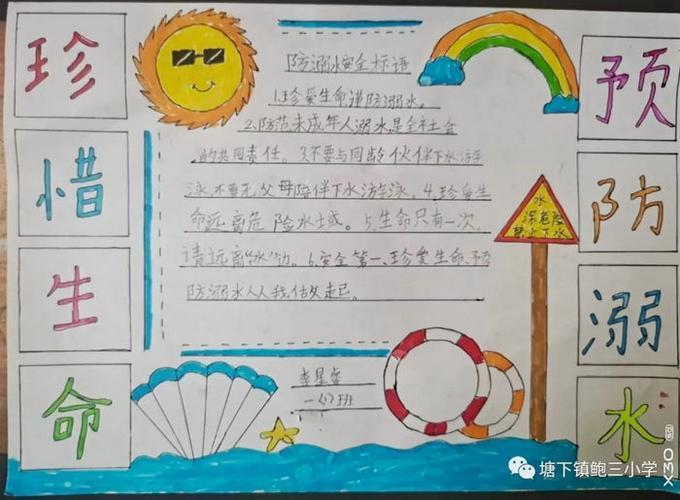 珍惜生命
预防溺水
防溺水安全标语
1.珍爱生命谨防溺水。
2.防范未成年人溺水是全社会
的共同责任。3.不要与同龄伙伴下水游
泳,不要无父母陪伴下水游泳。4.珍爱生
命远离危险水域。5.生命只有一次,
请远离"水"边。6.安全第一、珍爱生命、预
防溺水人人我做起。
水
深危险
禁止下水
李星
一(7)班
塘下镇鲍三小学